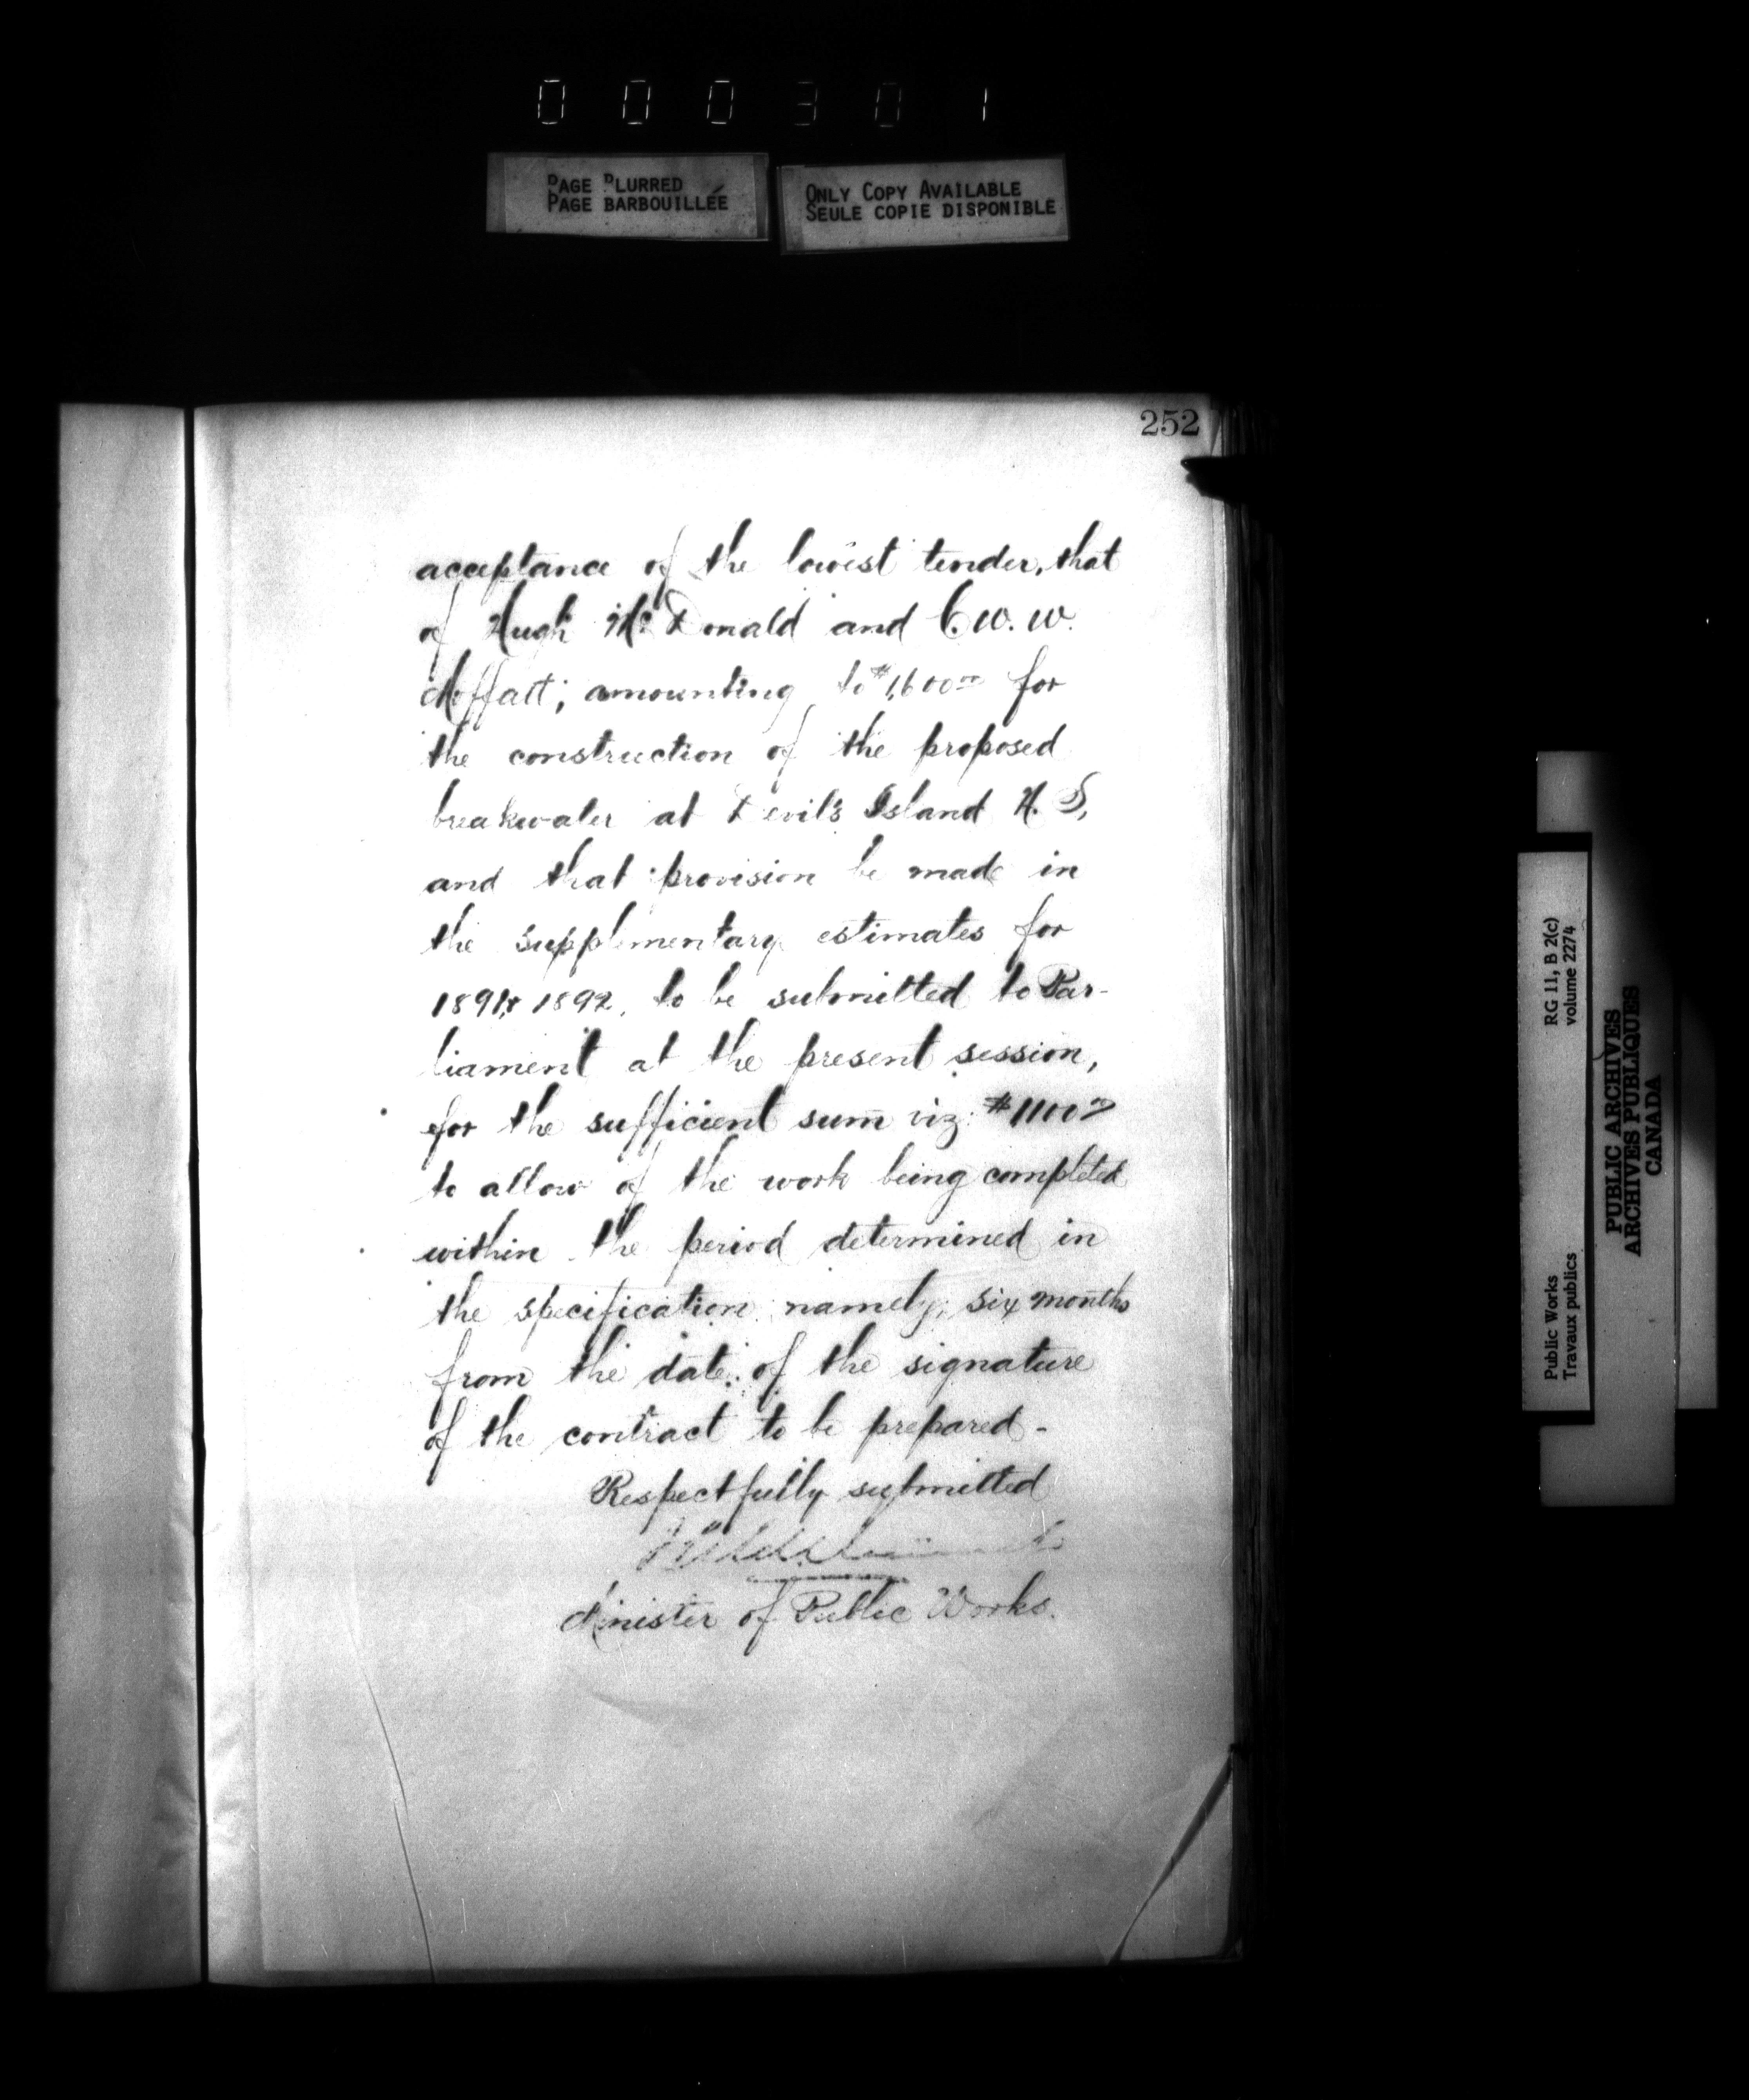 0 0 0 3 0 1
PAGE BLURRED
PAGE BARBOUILLÉE
ONLY COPY AVAILABLE
SEULE COPIE DISPONIBLE
252
acceptance of the lowest tender, that
of Hugh Mc Donald and C. W. W.
Moffatt; amounting to $1,600.00 for
the construction of the proposed
breakwater at Devil's Island N. S,
and that provision be made in
the supplementary estimates for
1891 & 1892, to be submitted to Par-
liament at the present session,
for the sufficient sum viz: $1100
to allow of the work being completed
within the period determined in
the specification namely; six months
from the date of the signature
of the contract to be prepared -
Respectfully submitted
Minister of Public Works.
RG 11, B 2(c)
volume 2274
Public Works
Travaux publics
PUBLIC ARCHIVES
ARCHIVES PUBLIQUES
CANADA